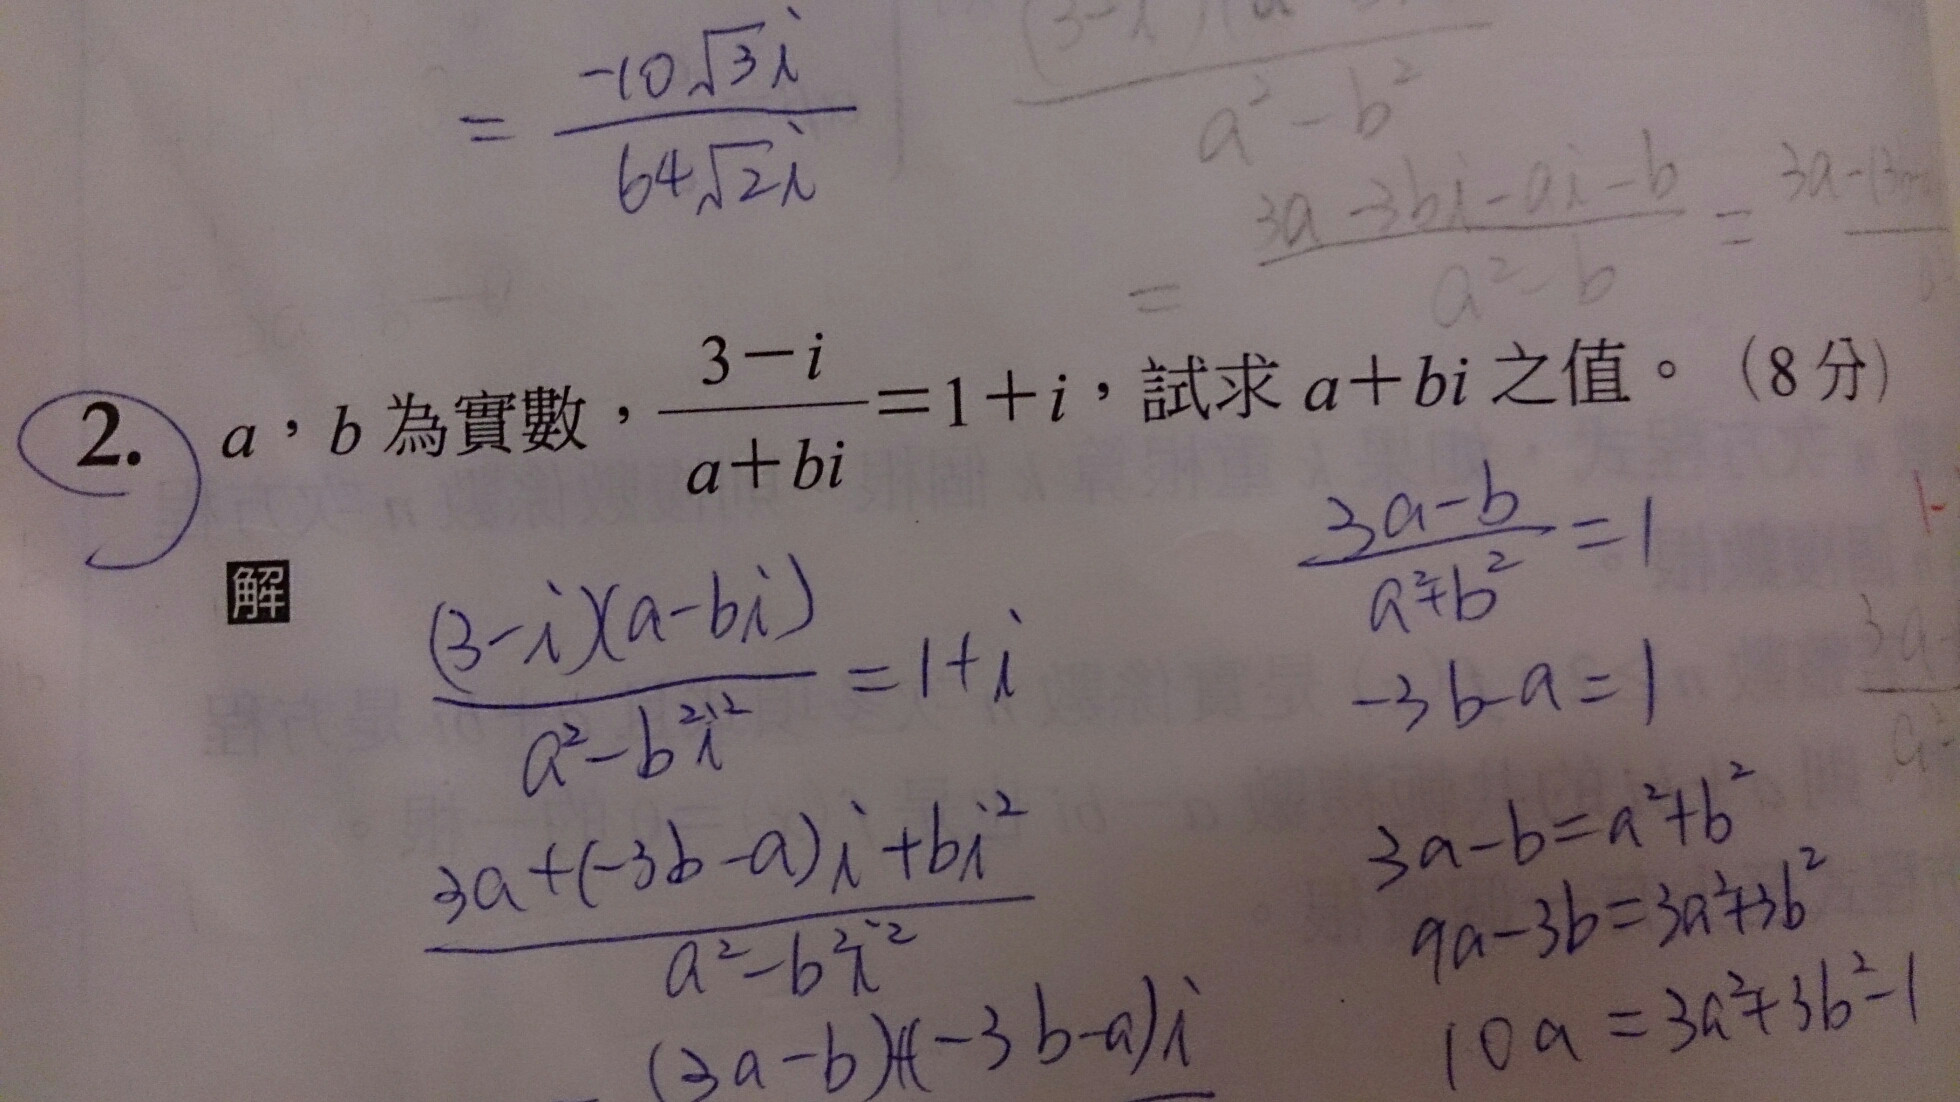 = -10√3i / 64√2i
a²-b²
= 3a-3bi-ai-b / a²-b =
2. a，b 為實數，3-i / a+bi =1+i，試求 a+bi 之值。（8 分）
解
(3-i)(a-bi) / a²-b²i² = 1+i
3a+(-3b-a)i+bi² / a²-b²i²
(3a-b)+(-3b-a)i
3a-b / a²+b² = 1
-3b-a=1
3a-b=a²+b²
9a-3b=3a²+3b²
10a=3a²+3b²-1